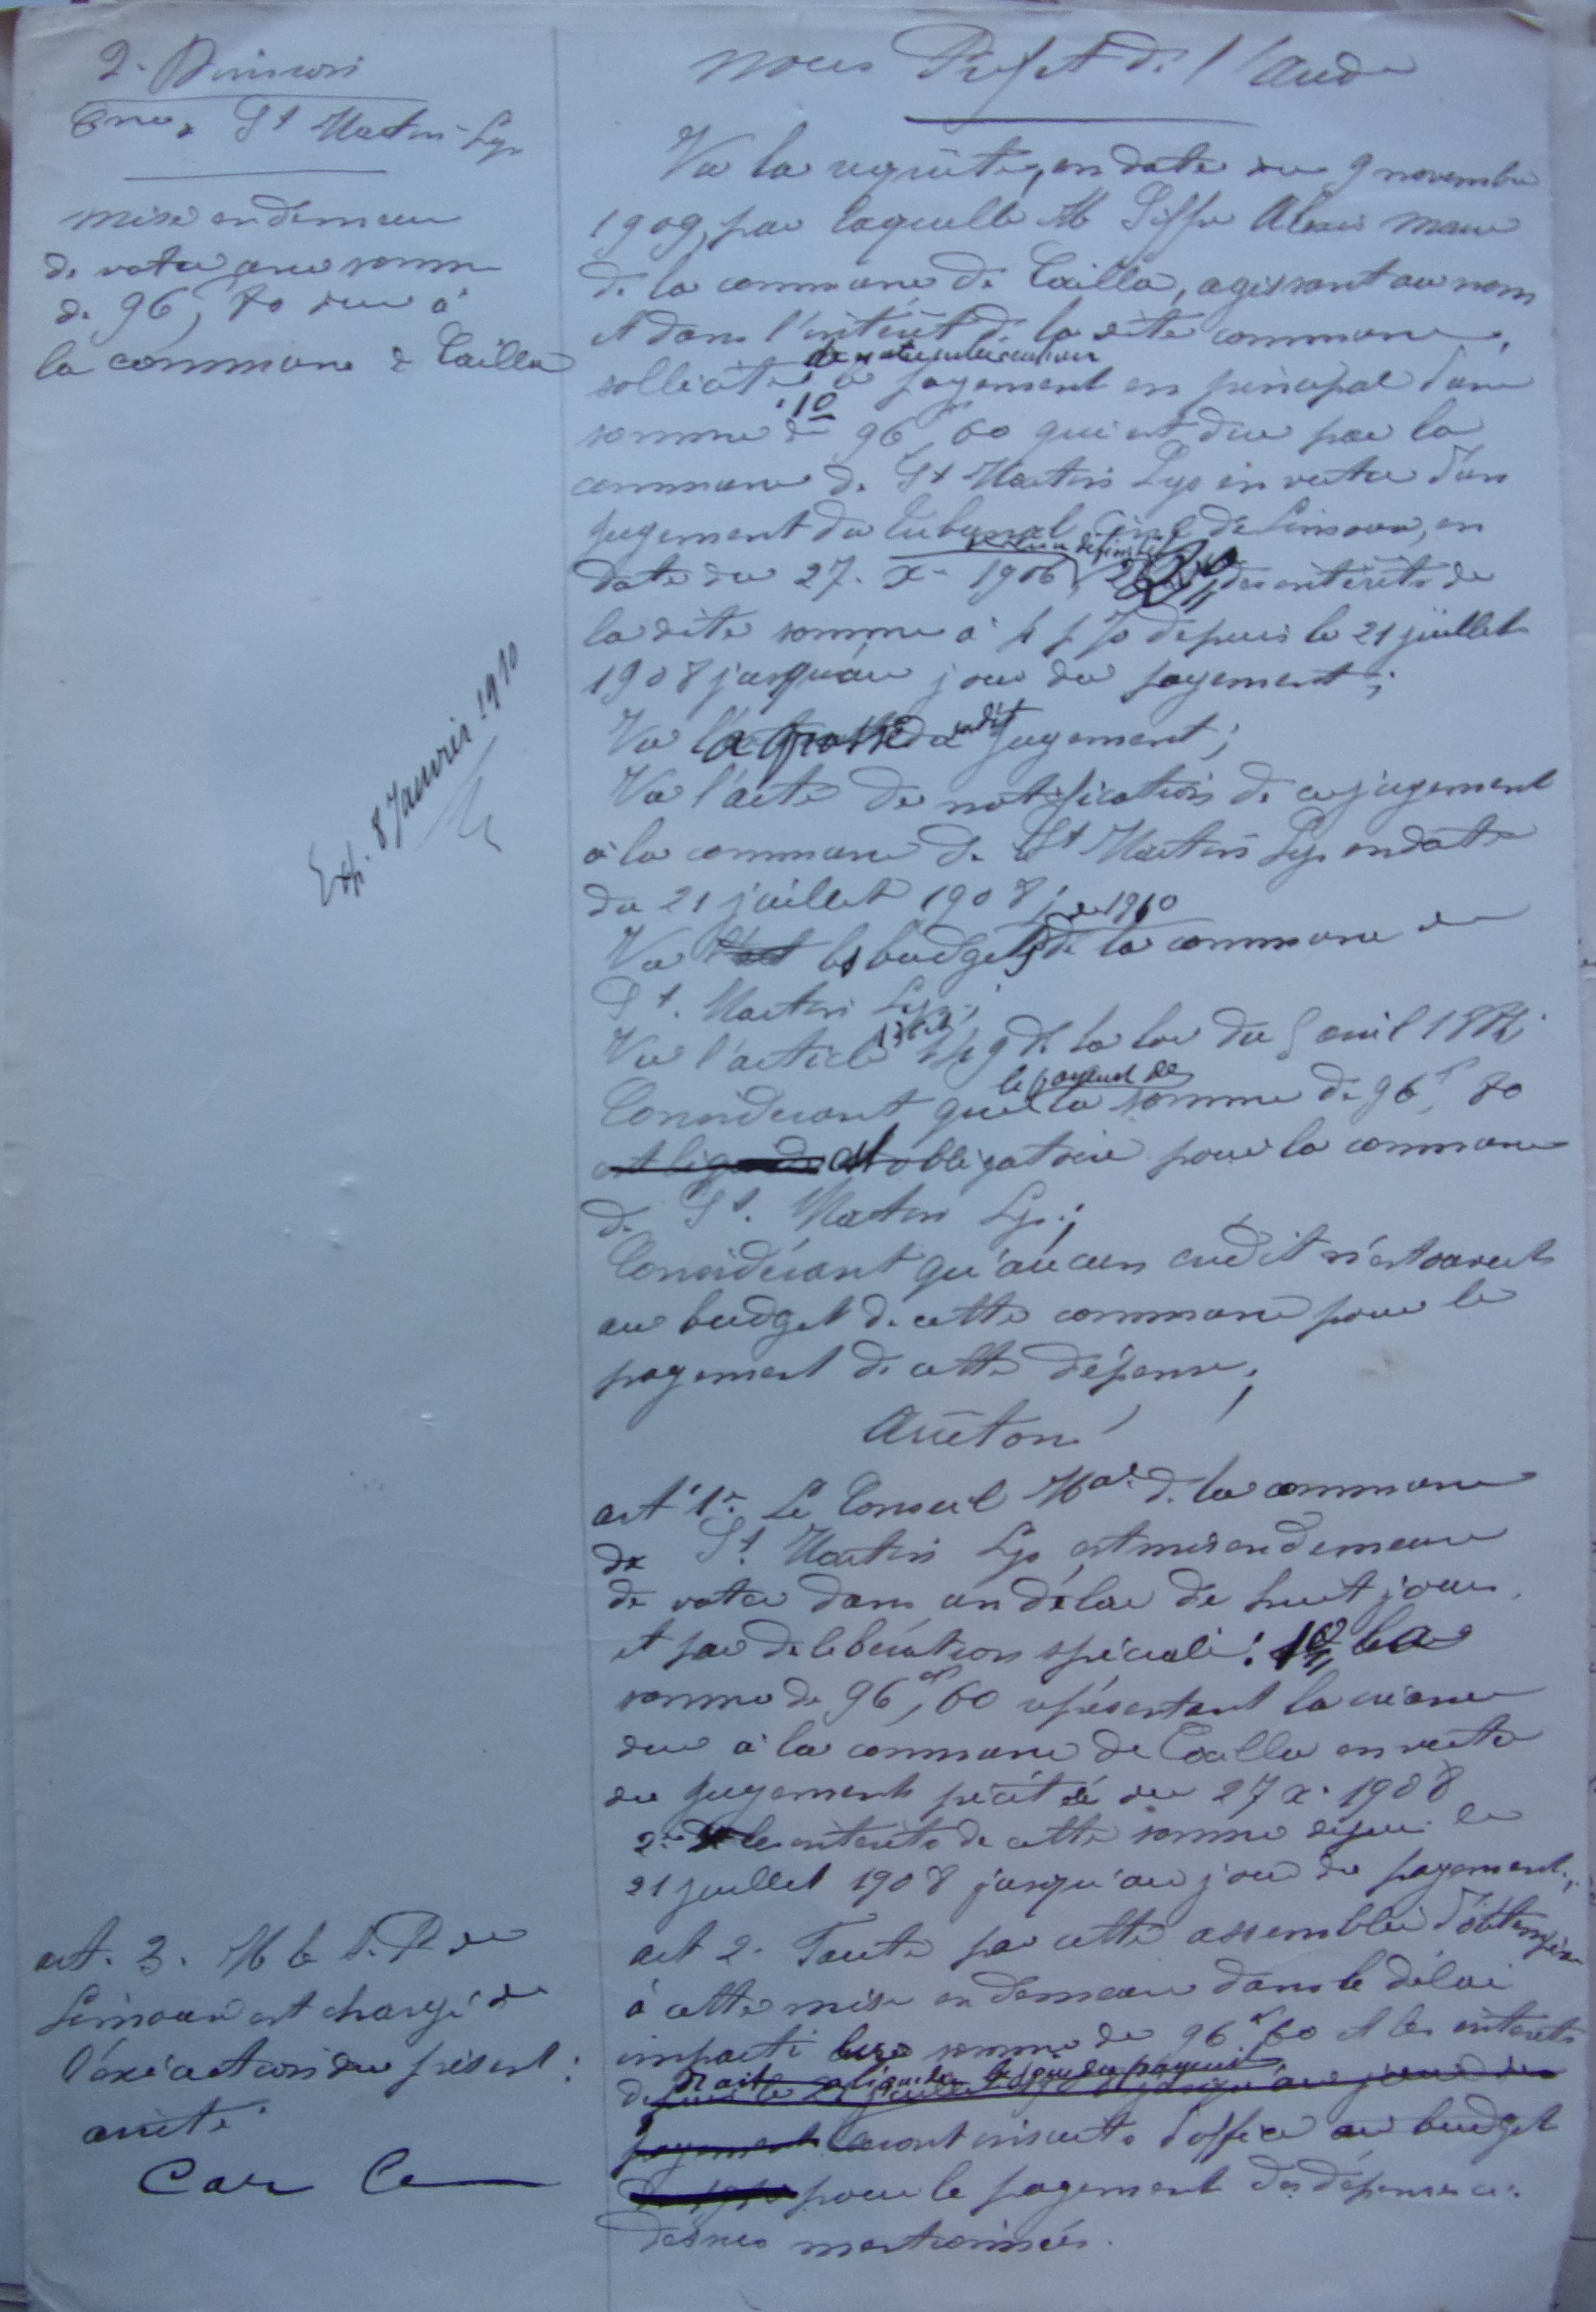 2e Division
Cne de St Martin-Lys
mise en demeure
de voter une somme
de 96f,80 due à
la commune de Cailla
Exp. 8 Janvier 1910
Nous Préfet de l'Aude
Vu la requête, en date du 9 novembre
1909, par laquelle M Siffre Alexis maire
de la commune de Cailla, agissant au nom
et dans l'intérêt de la dite commune,
sollicite le payement en principal d'une
1º
somme de 96f,60 qui est due par la
commune de St Martin Lys en vertu d'un
jugement du tribunal civil de Limoux, en
date du 27. Xe 1906, 2º des intérêts de
la dite somme à depuis le 21 juillet
1908 jusqu'au jour du payement;
Vu la grosse du susdit jugement;
Vu l'acte de notification de ce jugement
à la commune de St Martin Lys en date
du 21 juillet 1908;
Vu les budgets de 1910 de la commune de
St. Martin Lys;
Vu l'article 149 de la loi du 5 avril 1884;
le payement de
Considérant que la somme de 96f,80
est obligatoire pour la commune
de St. Martin Lys;
Considérant qu'aucun crédit n'est ouvert
au budget de cette commune pour le
payement de cette dépense;
Arrêtons
art 1er. Le Conseil Mal de la commune
de St. Martin Lys est mis en demeure
de voter dans un délai de huit jours,
et par délibération spéciale: 1º la
somme de 96f,60 représentant la créance
due à la commune de Cailla en vertu
du jugement précité du 27 Xe 1908
2º les intérêts de cette somme depuis le
21 juillet 1908 jusqu'au jour du payement;
art 2. Faute par cette assemblée d'obtempérer
à cette mise en demeure dans le délai
imparti la somme de 96f,60 et les intérêts
de droit à liquider le jour du payement
depuis le 21 juillet 1908 jusqu'au jour du
payement seront inscrits d'office au budget
de 1910 pour le payement des dépenses ci-
dessus mentionnées.
art. 3. M le S. P. de
Limoux est chargé de
l'exécution du présent
arrêté
Car Ca